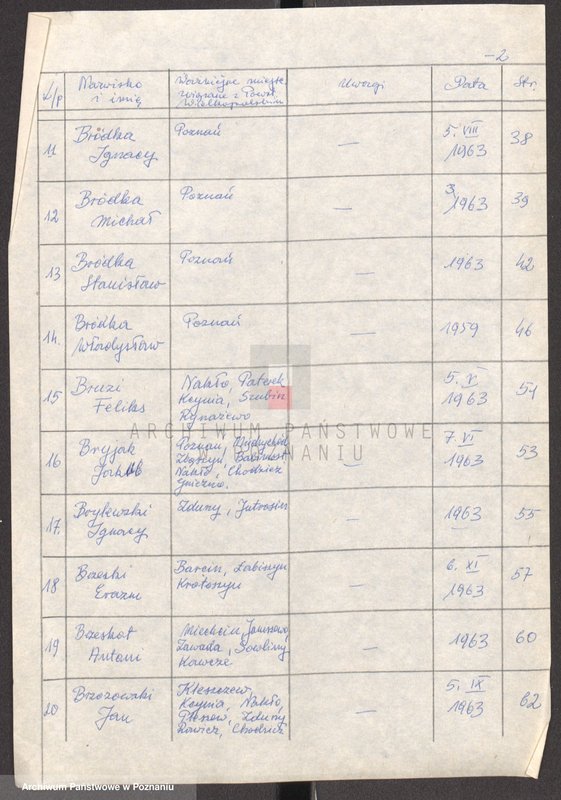 -2
L/p Nazwisko i imię Wcześniejsze miejsc. związane z Powst. Wielkopolskim Uwagi Data Str.
11 Bródka Ignacy Poznań — 5. VIII 1963 38
12 Bródka Michał Poznań — 3 1963 39
13 Bródka Stanisław Poznań — 1963 42
14. Bródka Władysław Poznań — 1959 46
15 Bruzi Feliks Nakło, Paterek Kcynia, Szubin Rynarzewo 5. V 1963 51
16 Bryjak Jakub Poznań, Międzychód Zbąszyń, Nakło, Chodzież Gniezno. — 7. VI 1963 53
17. Brylewski Ignacy Zduny, Jutrosin — 1963 55
18 Brzeski Erazm Barcin, Łabiszyn Krotoszyn — 6. XI 1963 57
19 Brzeskot Antoni Zawada — 1963 60
20 Brzozowski Jan Kcynia, Nakło, Pleszew, Zduny, Rawicz, Chodzież — 5. IX 1963 62
ARCHIWUM PAŃSTWOWE
W POZNANIU
Archiwum Państwowe w Poznaniu